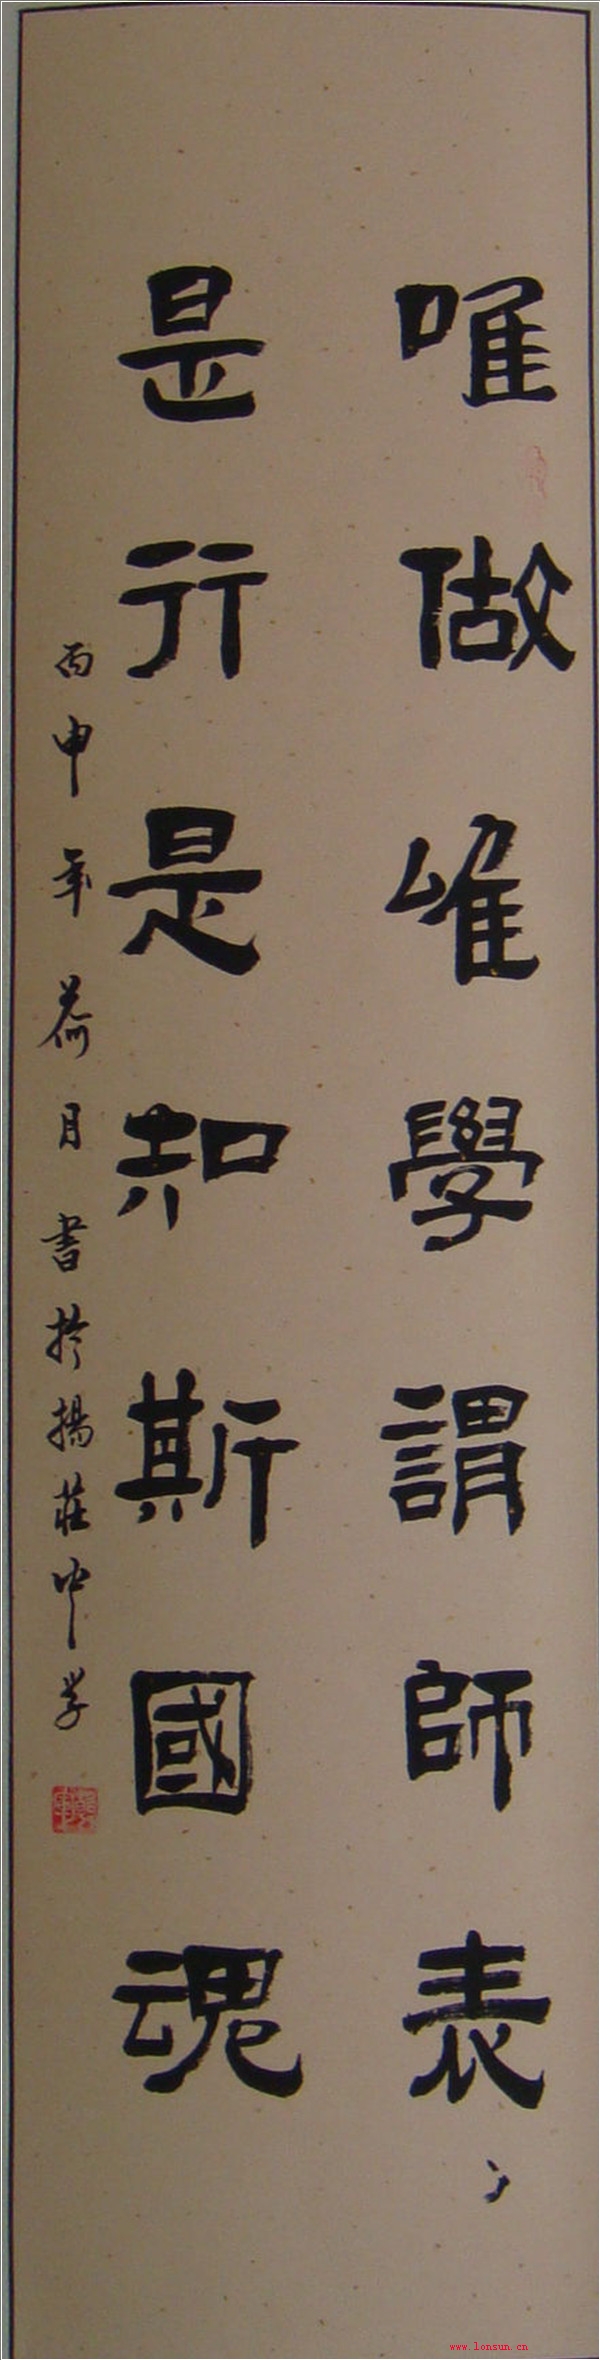 唯做唯學謂師表
是行是知斯國魂
丙申年荷月書於揚莊中学
www.lonsun.cn